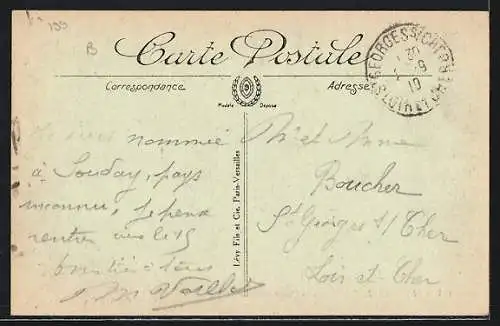 199
B
Carte Postale
Correspondance
Adresse
Modèle Déposé
ST GEORGES S/ CHER
30
9
19
LOIR ET CHER
nommé
à Souday, pays
inconnu, je peux
rentrer vers le 15
amitiés à tous
Lévy Fils et Cie, Paris-Versailles
Mr et Mme
Boucher
St Georges s/ Cher
Loir et-Cher